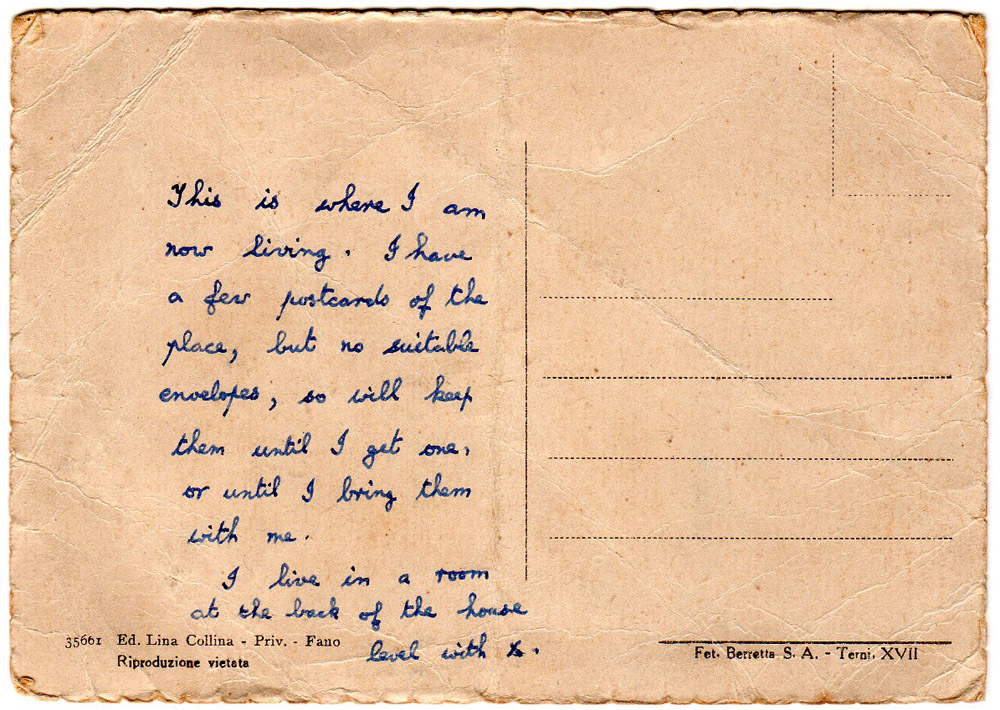 This is where I am
now living. I have
a few postcards of the
place, but no suitable
envelopes, so will keep
them until I get one,
or until I bring them
with me.
I live in a room
at the back of the house
level with x.
35661 Ed. Lina Collina - Priv. - Fano
Riproduzione vietata
Fot. Berretta S. A. - Terni. XVII